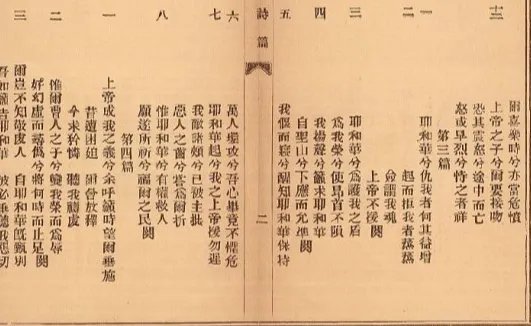 爾喜樂時兮亦當危懷
上帝之子兮爾要接吻
恐其震怒兮途中而亡
怒或早烈兮恃之者祥
第三篇
一 耶和華兮仇我者何其益增
起而拒我者蒸蒸
二 僉謂我魂
上帝不援闋
三 耶和華兮為護我之盾
為我榮兮使昂首不隕
四 我揚聲兮籲求耶和華
自聖山兮下應而允準闋
五 我偃而寢兮醒知耶和華保持
詩篇 二
六 萬人環攻兮吾心畢竟不懼危
七 耶和華起兮我之上帝援勿遲
我敵諸頰兮已被主批
惡人之齒兮為爾折
八 惟耶和華兮有權救人
願遂所祈兮福爾之民闋
第四篇
一 上帝成我之義兮余呼籲時望爾垂施
昔遭困迫 爾曾放釋
今求矜憐 聽我禱
二 惟爾曹人之子兮變我榮而為辱
好幻虛而尋偽兮將何時而止足闋
三 爾豈不知敬虔人 自耶和華旣甄別
吾如籲告耶和華 彼必垂聽我懇切